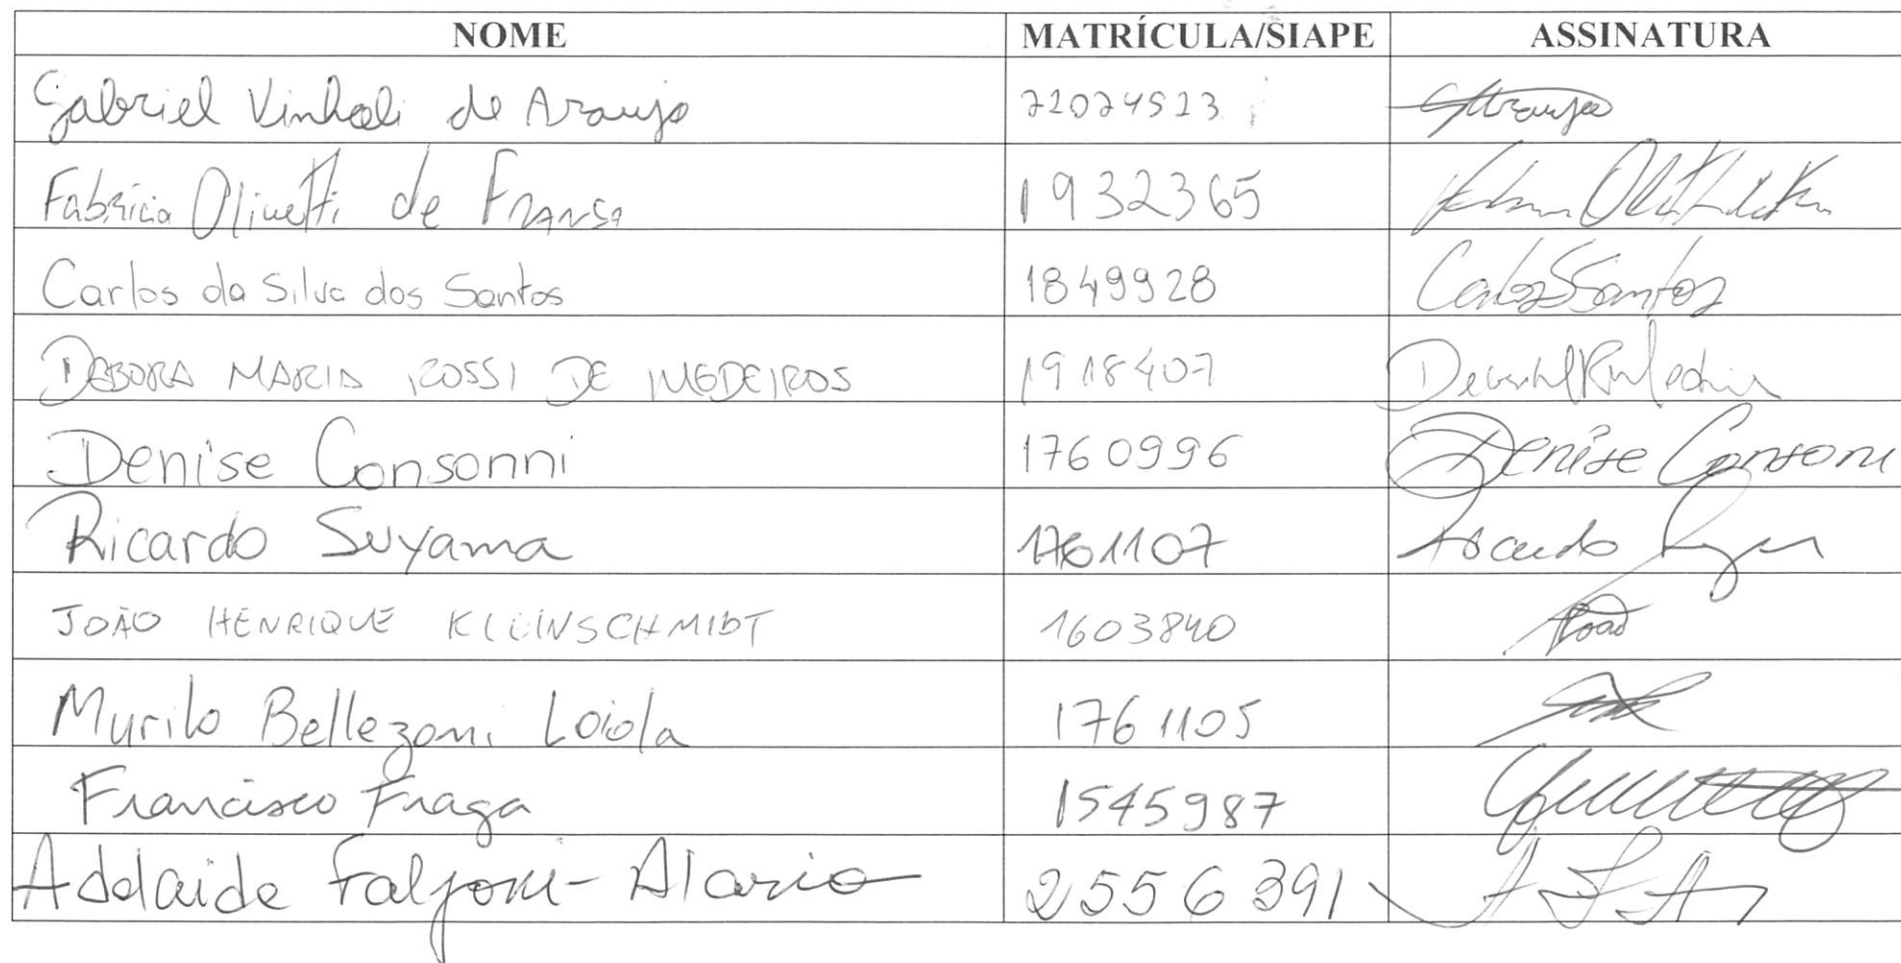 NOME MATRÍCULA/SIAPE ASSINATURA
Gabriel Vinholi de Araujo 21074513 GAraujo
Fabrício Olivetti de França 1932365
Carlos da Silva dos Santos 1849928 Carlos S Santos
DEBORA MARIA ROSSI DE MEDEIROS 1918407
Denise Consonni 1760996 Denise Consoni
Ricardo Suyama 1761107 Ricardo
JOÃO HENRIQUE KLEINSCHMIDT 1603840 João
Murilo Bellezoni Loiola 1761105
Francisco Fraga 1545987
Adelaide Faljoni-Alario 2556391 A F A